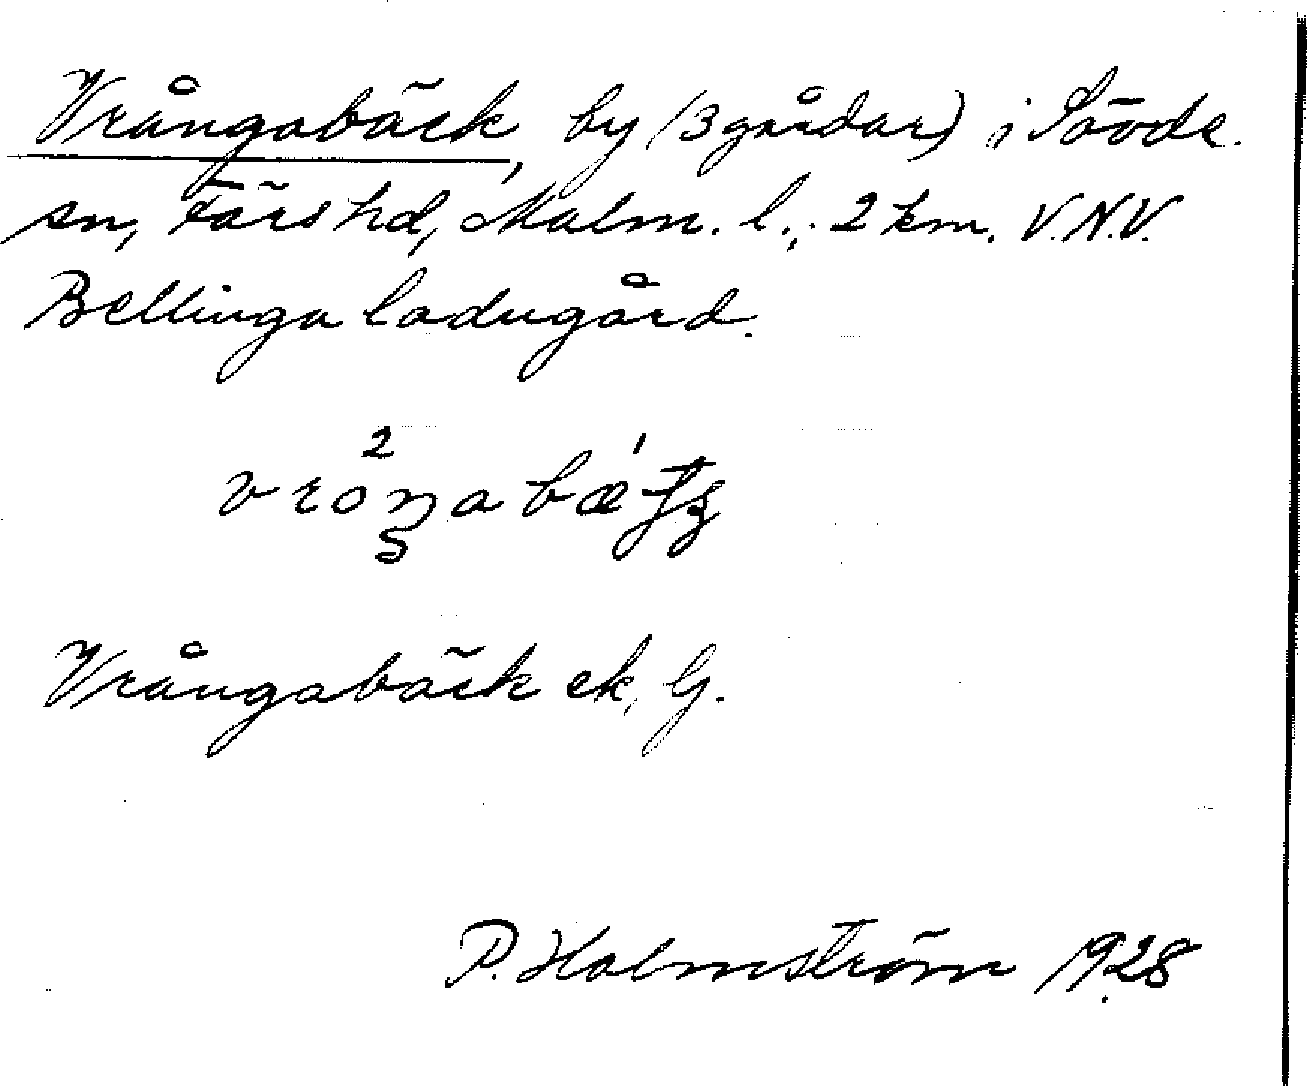 Vrångabäck, by (3 gårdar) i Sövde.
sn, Färs hd, Malm. l., 2 km. V.N.V.
Bellinga ladugård.
Vrångabäck ek, G.
P. Holmström 1928